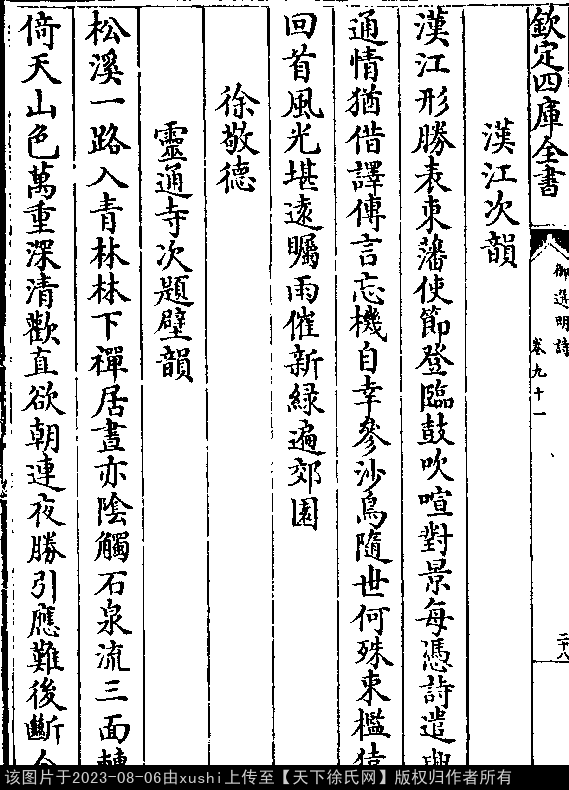 欽定四庫全書
御選明詩
卷九十一
二十八
漢江次韻
漢江形勝表東藩使節登臨鼓吹喧對景每憑詩遣興
通情猶借譯傳言忘機自幸參沙鳥隨世何殊東檻猿
回首風光堪遠矚雨催新緑遍郊園
徐敬德
靈通寺次題壁韻
松溪一路入青林林下禪居晝亦陰觸石泉流三面轉
倚天山色萬重深清歡直欲朝連夜勝引應難後斷
该图片于2023-08-06由xushi上传至【天下徐氏网】版权归作者所有